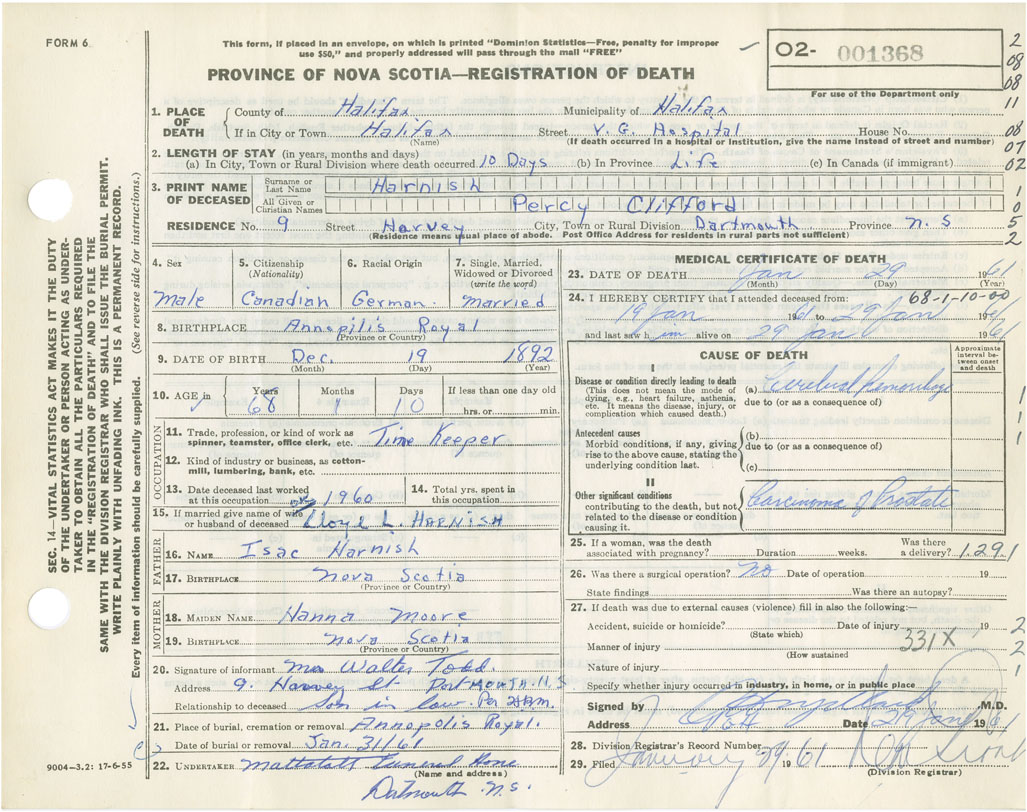 FORM 6
This form, if placed in an envelope, on which is printed "Dominion Statistics—Free, penalty for improper
use $50," and properly addressed will pass through the mail "FREE"
PROVINCE OF NOVA SCOTIA—REGISTRATION OF DEATH
02- 001368
For use of the Department only
2
08
08
11
08
07
02
1
0
5
2
1. PLACE OF DEATH { County of Halifax Municipality of Halifax
If in City or Town Halifax Street V. G. Hospital House No.
(Name) (If death occurred in a hospital or Institution, give the name instead of street and number)
2. LENGTH OF STAY (in years, months and days)
(a) In City, Town or Rural Division where death occurred 10 Days (b) In Province Life (c) In Canada (if immigrant)
3. PRINT NAME OF DECEASED { Surname or Last Name Harnish
All Given or Christian Names Percy Clifford
RESIDENCE No. 9 Street Harvey City, Town or Rural Division Dartmouth Province N. S
(Residence means usual place of abode. Post Office Address for residents in rural parts not sufficient)
4. Sex Male
5. Citizenship (Nationality) Canadian
6. Racial Origin German
7. Single, Married, Widowed or Divorced (write the word) Married
8. BIRTHPLACE Annopilis Royal
(Province or Country)
9. DATE OF BIRTH Dec. 19 1892
(Month) (Day) (Year)
10. AGE in Years 68 Months 1 Days 10 If less than one day old
hrs. or min.
OCCUPATION
11. Trade, profession, or kind of work as
spinner, teamster, office clerk, etc. Time Keeper
12. Kind of industry or business, as cotton-
mill, lumbering, bank, etc.
13. Date deceased last worked
at this occupation 1960
14. Total yrs. spent in
this occupation
15. If married give name of wife
or husband of deceased Lloyd L. HARNISH
FATHER
16. NAME Isac Harnish
17. BIRTHPLACE Nova Scotia
(Province or Country)
MOTHER
18. MAIDEN NAME Hanna Moore
19. BIRTHPLACE Nova Scotia
(Province or Country)
20. Signature of informant Mrs Walter Todd.
Address 9. Harvey St Dartmouth. N. S
Relationship to deceased Son in law. Per
21. Place of burial, cremation or removal Annopolis Royal.
Date of burial or removal Jan. 31/61
22. UNDERTAKER Mattatall Funeral Home
(Name and address)
Datmouth N.S.
MEDICAL CERTIFICATE OF DEATH
23. DATE OF DEATH Jan 29 1961
(Month) (Day) (Year)
24. I HEREBY CERTIFY that I attended deceased from: 68-1-10-00
19 Jan 1961 to 29 Jan 1961
and last saw him alive on 29 Jan 1961
CAUSE OF DEATH
Approximate interval between onset and death
I
Disease or condition directly leading to death
(This does not mean the mode of
dying, e.g., heart failure, asthenia,
etc. It means the disease, injury, or
complication which caused death.)
(a) Cerebral Hemorrhage
due to (or as a consequence of)
Antecedent causes
Morbid conditions, if any, giving
rise to the above cause, stating the
underlying condition last.
(b)
due to (or as a consequence of)
(c)
II
Other significant conditions
contributing to the death, but not
related to the disease or condition
causing it.
Carcinoma of Prostate
1
1
1
25. If a woman, was the death
associated with pregnancy? Duration weeks. Was there
a delivery? 1.291
26. Was there a surgical operation? No Date of operation 19
State findings Was there an autopsy?
27. If death was due to external causes (violence) fill in also the following:—
Accident, suicide or homicide? Date of injury 19
(State which)
Manner of injury 331X
(How sustained
Nature of injury
Specify whether injury occurred in industry, in home, or in public place
2
2
1
Signed by M.D.
Address Date 29 Jan 1961
28. Division Registrar's Record Number
29. Filed January 29 1961
(Division Registrar)
SEC. 14—VITAL STATISTICS ACT MAKES IT THE DUTY
OF THE UNDERTAKER OR PERSON ACTING AS UNDER-
TAKER TO OBTAIN ALL THE PARTICULARS REQUIRED
IN THE "REGISTRATION OF DEATH" AND TO FILE THE
SAME WITH THE DIVISION REGISTRAR WHO SHALL ISSUE THE BURIAL PERMIT.
WRITE PLAINLY WITH UNFADING INK. THIS IS A PERMANENT RECORD.
Every item of information should be carefully supplied. (See reverse side for instructions.)
9004-3.2: 17-6-55